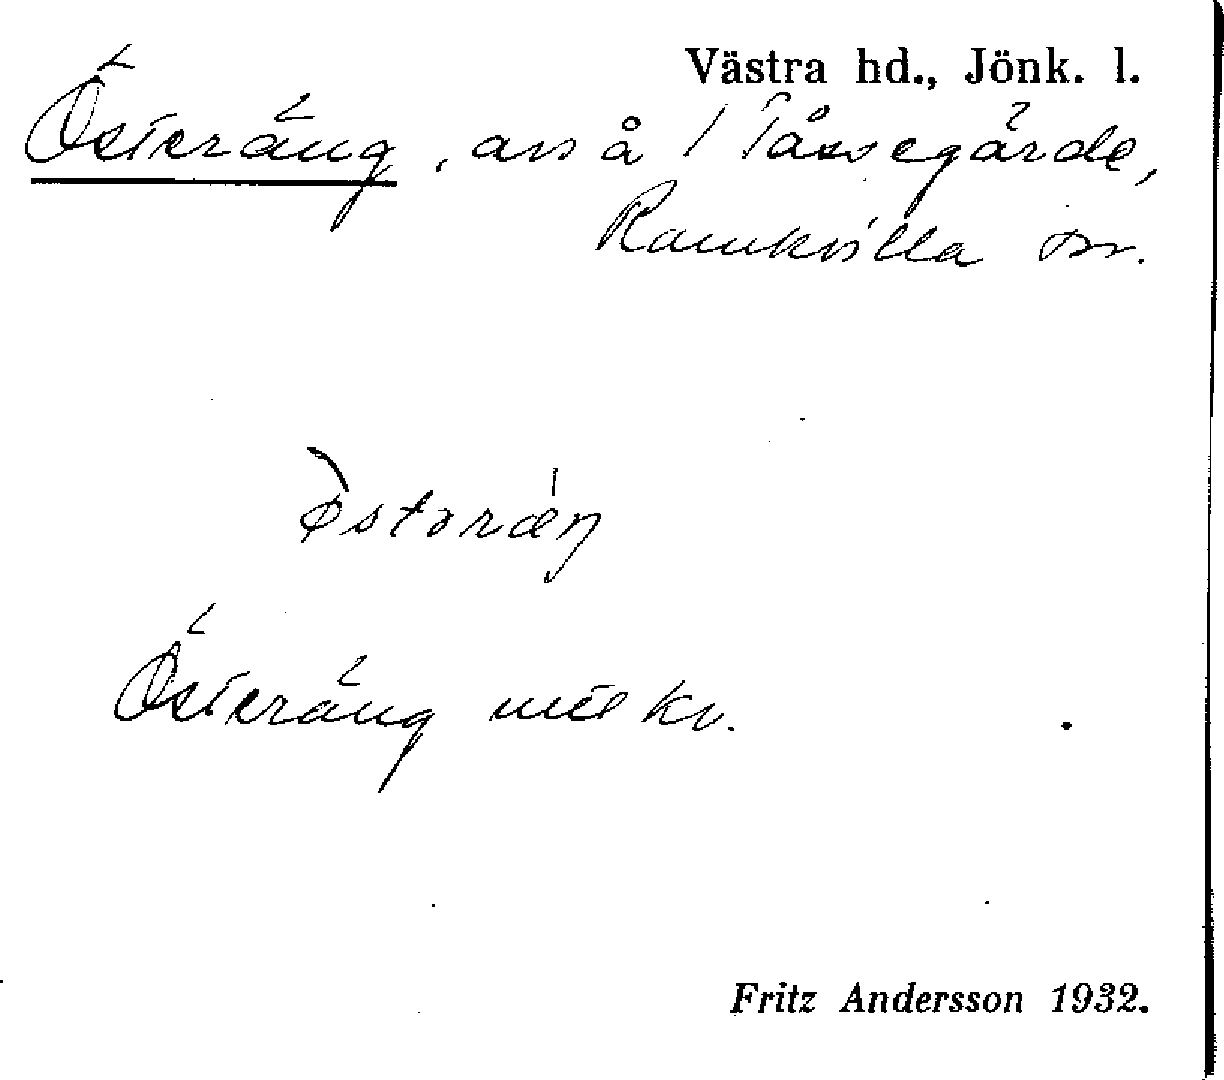 Västra hd., Jönk. l.
Österäng, avs å 1 Tåssegärde,
Ramkvilla sn.
østəræŋ
Österäng mtl kv.
Fritz Andersson 1932.